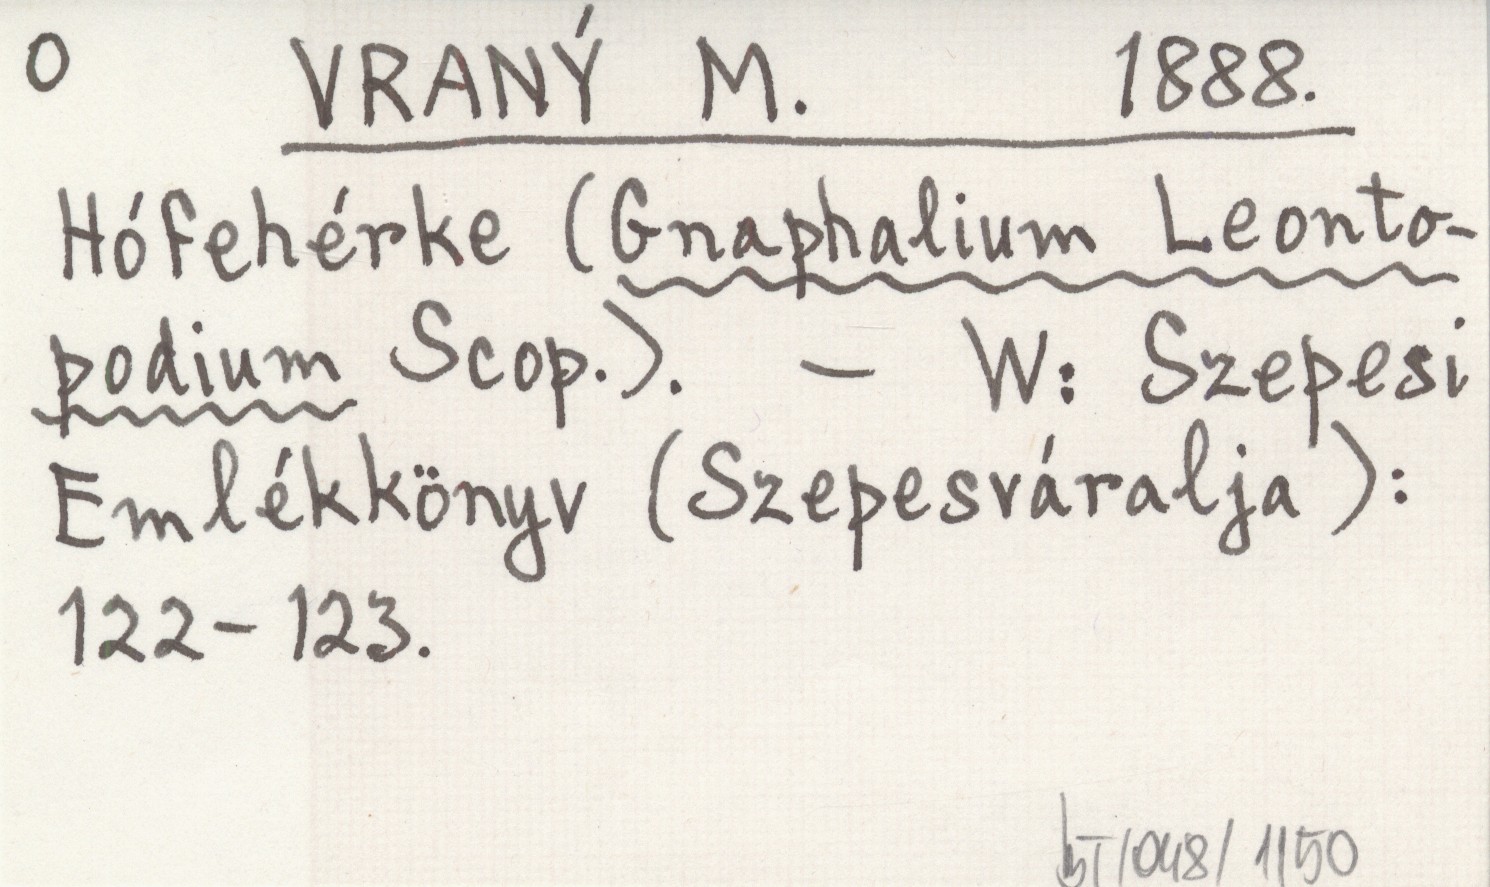 O VRANÝ M. 1888.
Hófehérke (Gnaphalium Leonto-
podium Scop.). – W: Szepesi
Emlékkönyv (Szepesváralja):
122–123.
/048/1150